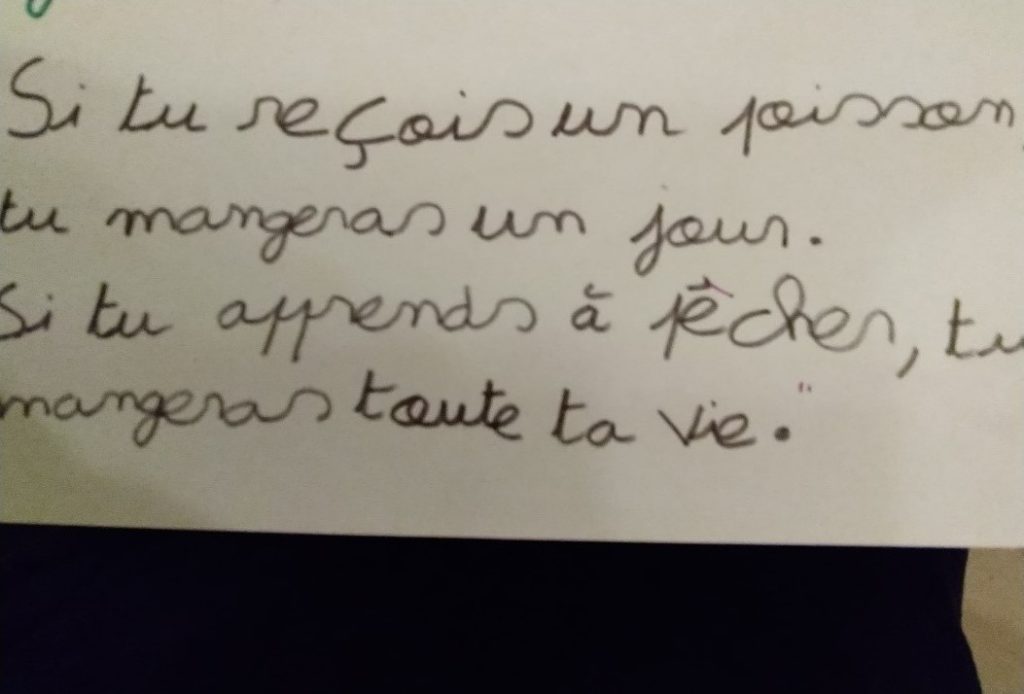 Si tu reçois un poisson,
tu mangeras un jour.
Si tu apprends à pêcher, tu
mangeras toute ta vie."